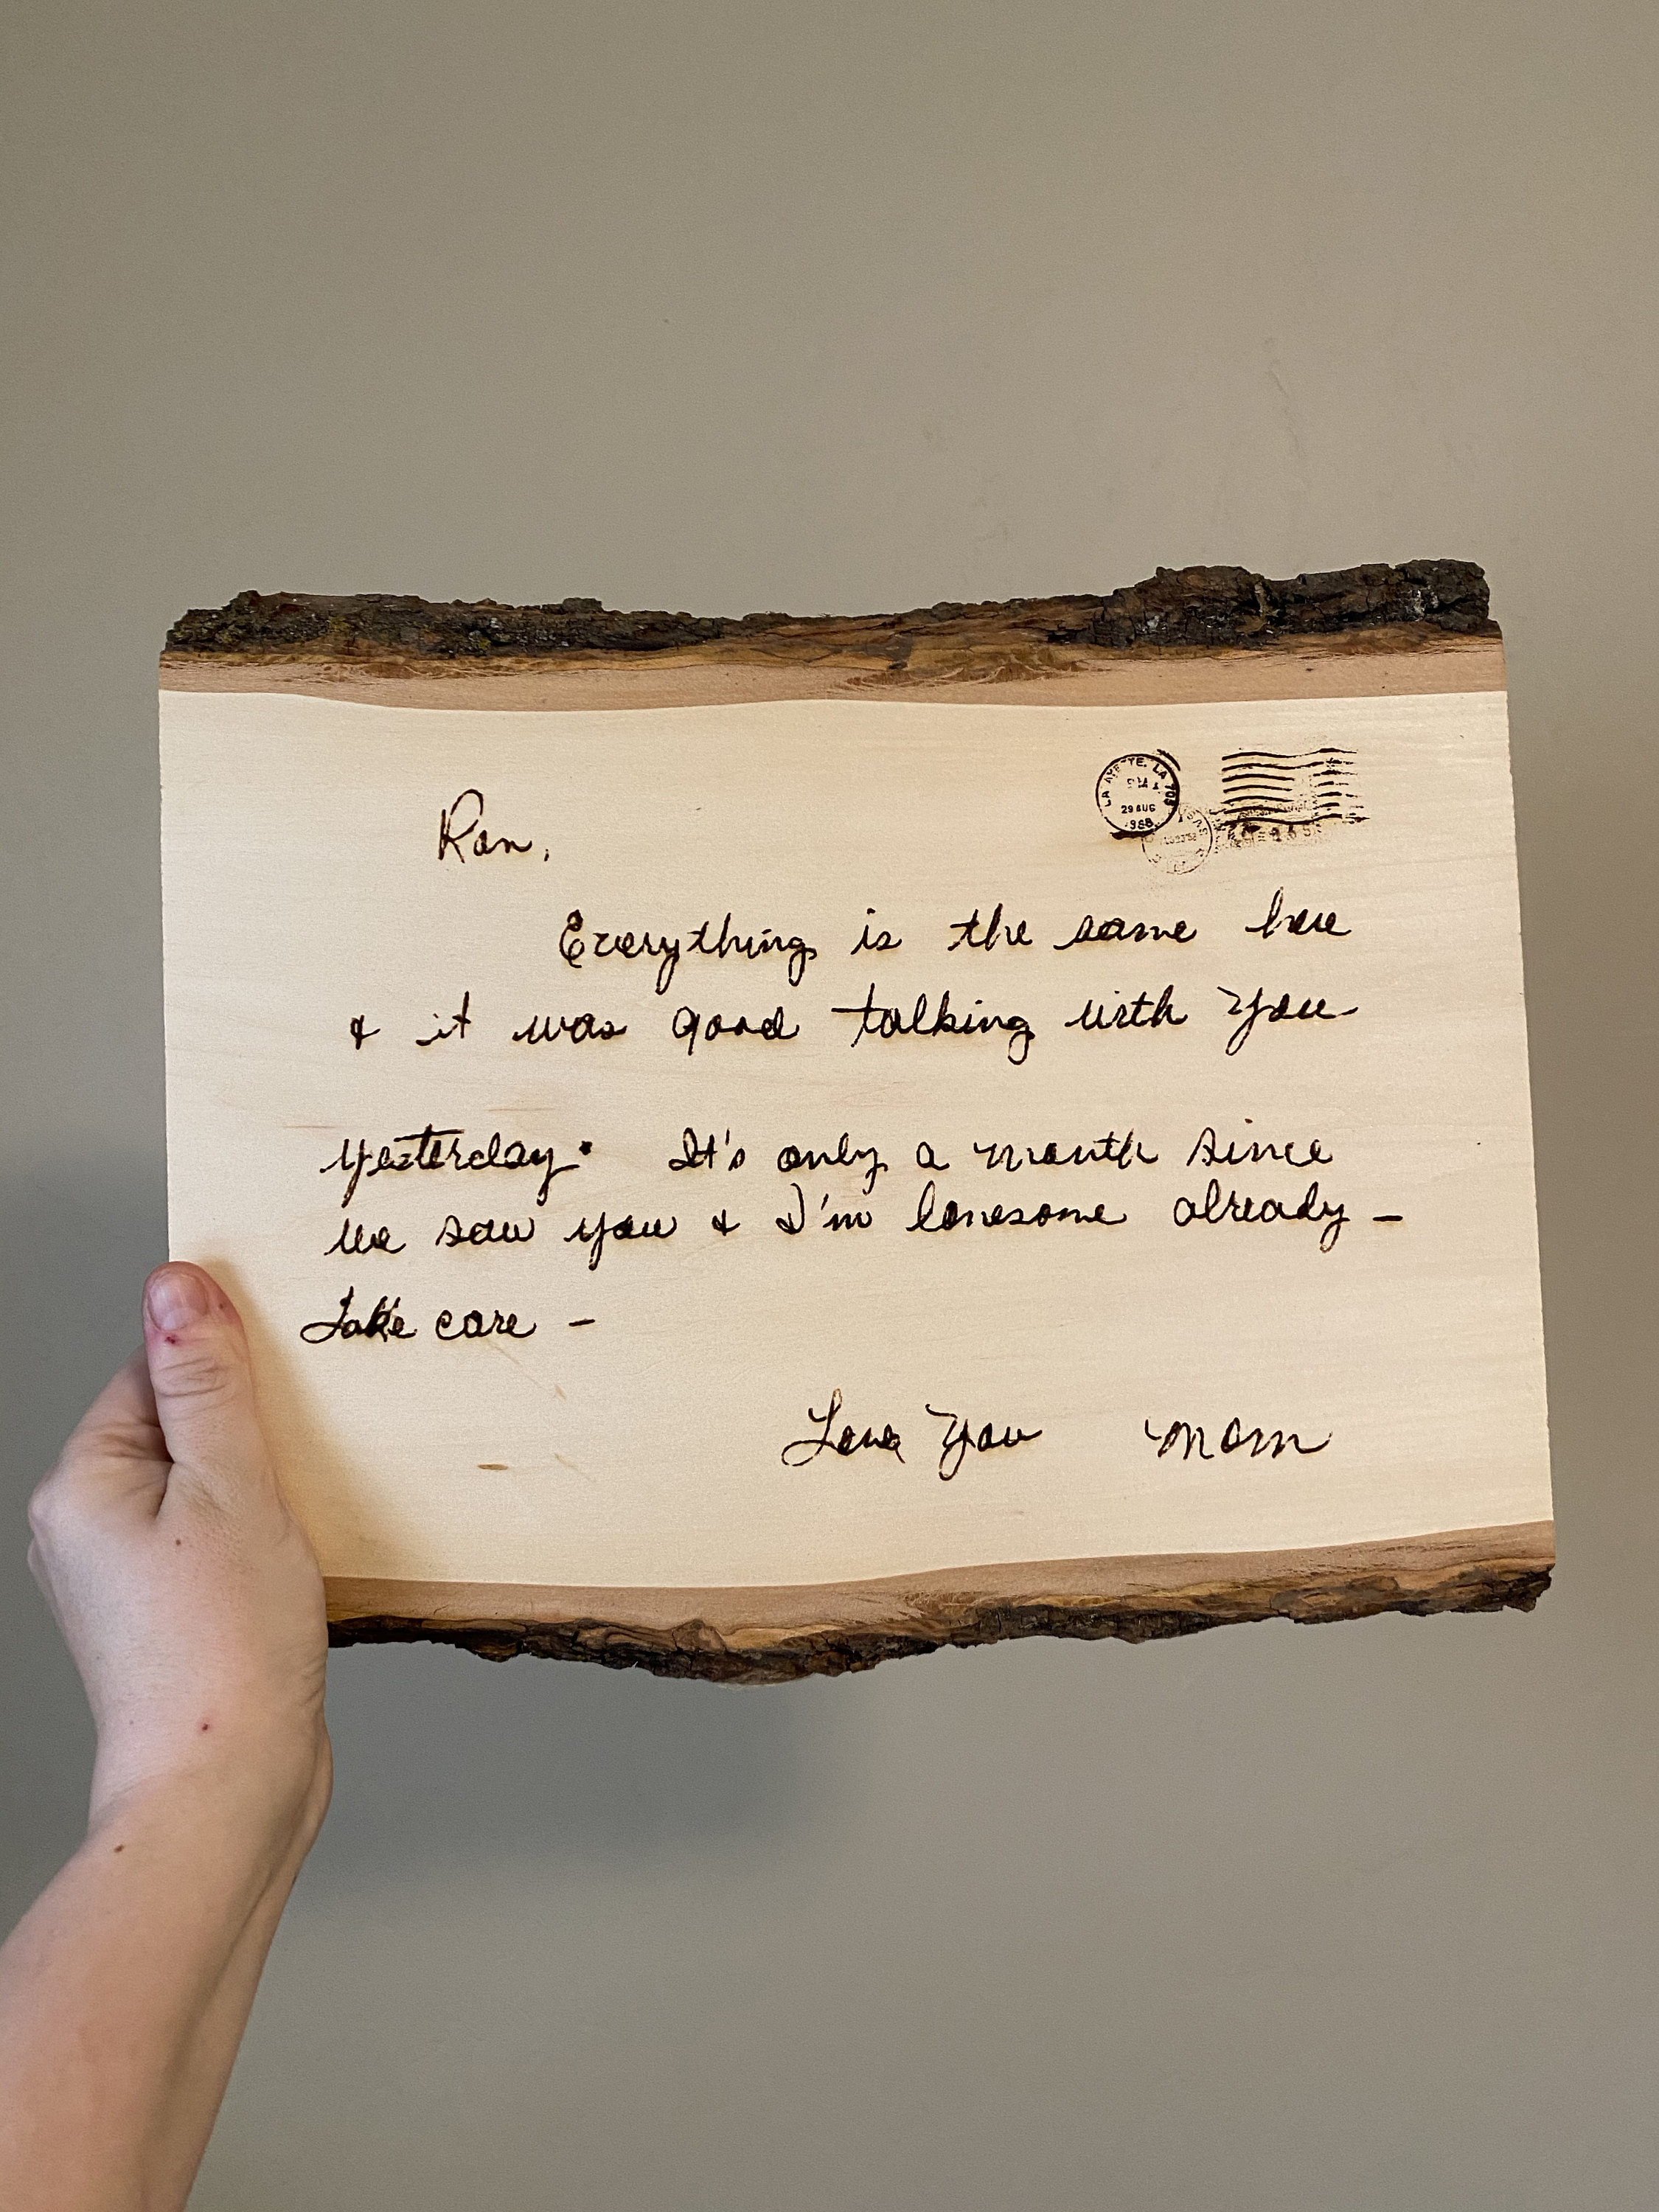 LAFAYETTE, LA 705
PM
29 AUG
1988
Ron,
Everything is the same here
& it was good talking with you
yesterday. It's only a month since
we saw you & I'm lonesome already –
Take care –
Love You Mom